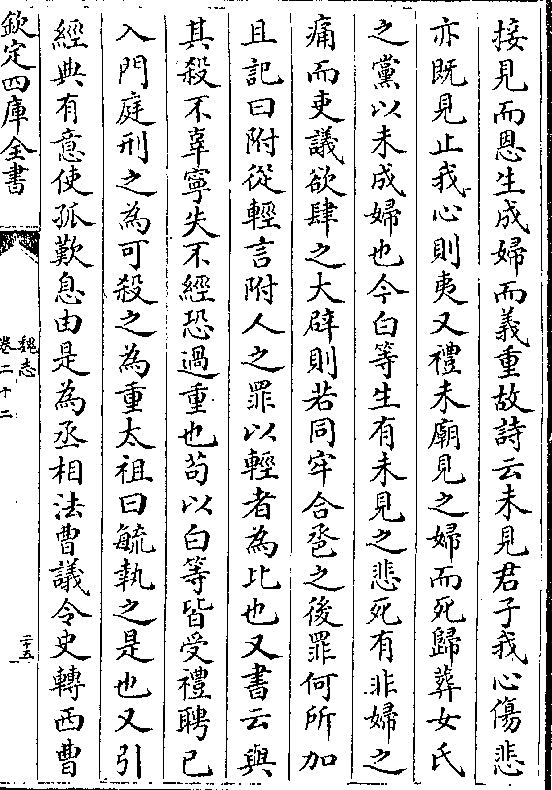 接見而恩生成婦而義重故詩云未見君子我心傷悲
亦既見止我心則夷又禮未廟見之婦而死歸葬女氏
之黨以未成婦也今白等生有未見之悲死有非婦之
痛而吏議欲肆之大辟則若同牢合巹之後罪何所加
且記曰附從輕言附人之罪以輕者為比也又書云與
其殺不辜寧失不經恐過重也苟以白等皆受禮聘已
入門庭刑之為可殺之為重太祖曰毓執之是也又引
經典有意使孤歎息由是為丞相法曹議令史轉西曹
欽定四庫全書
魏志
卷二十二
二十五